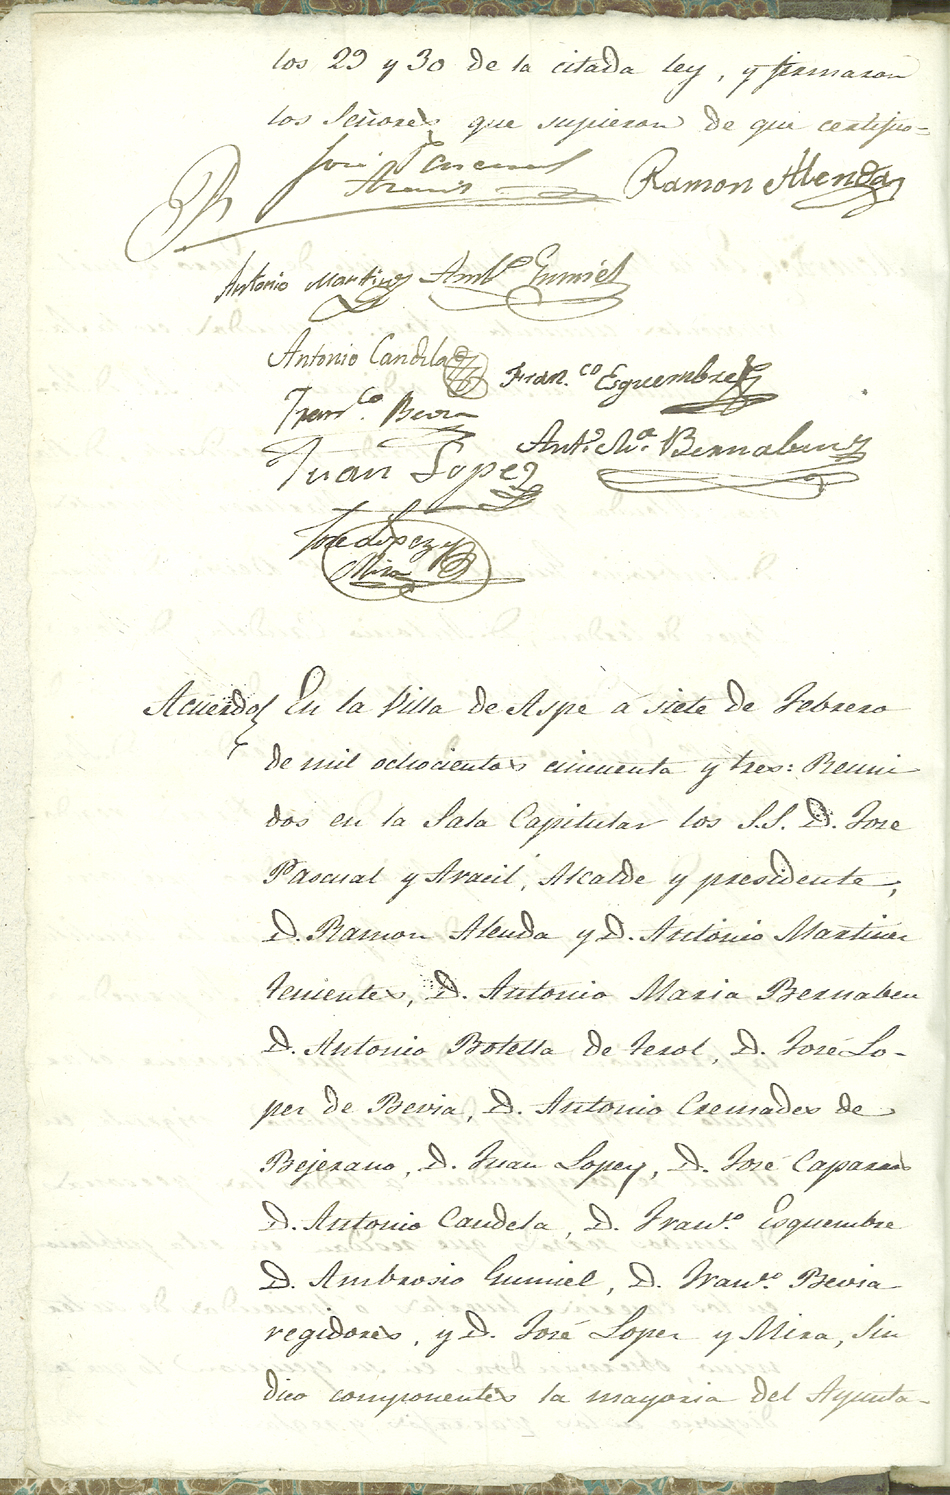 los 29 y 30 de la citada ley, y firmaron
los Señores que supieron de que certifico=
José Pascual
Aracil
Ramon Alenda
Antonio Martinez Ambº Gumiel
Antonio Candela
Fran.co Esquembre
Franco. Bevia
Antº Mª Bernabeu
Juan Lopez
José Lopez y
Mira
Acuerdo En la Villa de Aspe á siete de Febrero
de mil ochocientos cincuenta y tres: Reuni
dos en la Sala Capitular los S.S. D. José
Pascual y Aracil, Alcalde y presidente,
D. Ramon Alenda y D. Antonio Martinez
tenientes, D. Antonio Maria Bernabeu
D. Antonio Botella de Terol, D. José Lo-
pez de Bevia, D. Antonio Cremades de
Bejerano, D. Juan Lopez, D. José Caparros
D. Antonio Candela, D. Franco. Esquembre
D. Ambrosio Gumiel, D. Franco. Bevia
regidores, y D. José Lopez y Mira, Sin
dico componentes la mayoria del Ayunta-